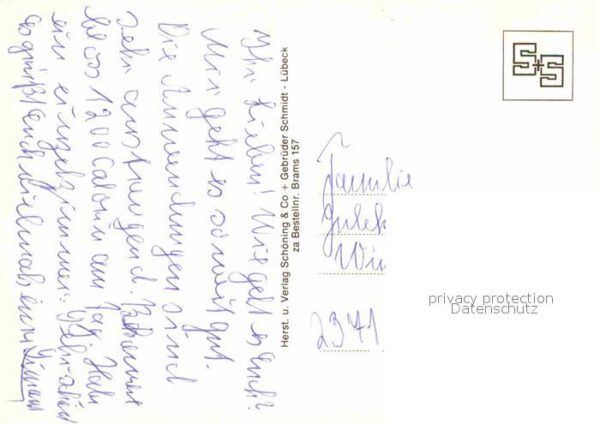 Ihr Lieben! Wie geht es Euch?
Mir geht es soweit gut.
Die Anwendungen sind
sehr anstrengend. Bekomme
bloss 1200 Calorien am Tag. Habe
ein einzelzimmer.
es grüßt Euch vielmals, eure
Herst. u. Verlag Schöning & Co + Gebrüder Schmidt - Lübeck
za Bestellnr. Brams 157
S+S
Familie
2941
privacy protection
Datenschutz